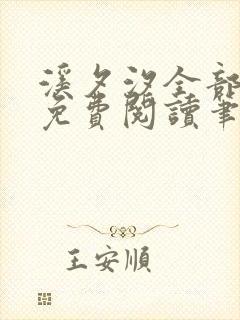 溪夕汐全部
免費閱讀筆
王安順